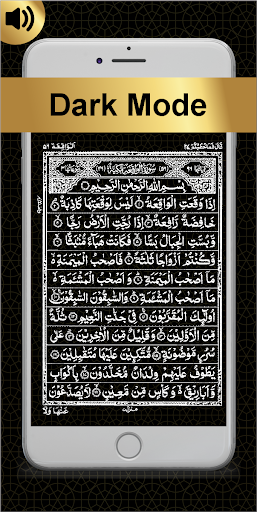 Dark Mode
قال فما خطبكم ٢٧ الواقعة ٥٦
سورة الواقعة مكية
بِسْمِ اللهِ الرَّحْمٰنِ الرَّحِيْمِ
اِذَا وَقَعَتِ الْوَاقِعَةُ ۙ لَيْسَ لِوَقْعَتِهَا كَاذِبَةٌ ۘ
خَافِضَةٌ رَّافِعَةٌ ۙ اِذَا رُجَّتِ الْاَرْضُ رَجًّا ۙ
وَّبُسَّتِ الْجِبَالُ بَسًّا ۙ فَكَانَتْ هَبَآءً مُّنْۢبَثًّا ۙ
وَّكُنْتُمْ اَزْوَاجًا ثَلٰثَةً ؕ فَاَصْحٰبُ الْمَيْمَنَةِ
مَاۤ اَصْحٰبُ الْمَيْمَنَةِ ؕ وَاَصْحٰبُ الْمَشْـَٔمَةِ
مَاۤ اَصْحٰبُ الْمَشْـَٔمَةِ ؕ وَالسّٰبِقُوْنَ السّٰبِقُوْنَ ۚ
اُولٰٓئِكَ الْمُقَرَّبُوْنَ ۚ فِيْ جَنّٰتِ النَّعِيْمِ ثُلَّةٌ
مِّنَ الْاَوَّلِيْنَ ۙ وَقَلِيْلٌ مِّنَ الْاٰخِرِيْنَ ؕ عَلٰى
سُرُرٍ مَّوْضُوْنَةٍ ۙ مُّتَّكِـِٕيْنَ عَلَيْهَا مُتَقٰبِلِيْنَ
يَطُوْفُ عَلَيْهِمْ وِلْدَانٌ مُّخَلَّدُوْنَ ۙ بِاَكْوَابٍ
وَّاَبَارِيْقَ ۙ وَكَاْسٍ مِّنْ مَّعِيْنٍ ۙ لَّا يُصَدَّعُوْنَ
عَنْهَا وَلَا